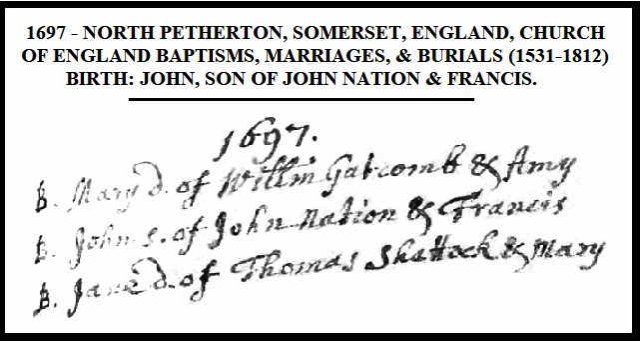 1697 - NORTH PETHERTON, SOMERSET, ENGLAND, CHURCH
OF ENGLAND BAPTISMS, MARRIAGES, & BURIALS (1531-1812)
BIRTH: JOHN, SON OF JOHN NATION & FRANCIS.
1697.
B. Mary d. of Willm Gatcomb & Amy
B. John s. of John Nation & Francis
B. Jane d. of Thomas Shattock & Mary